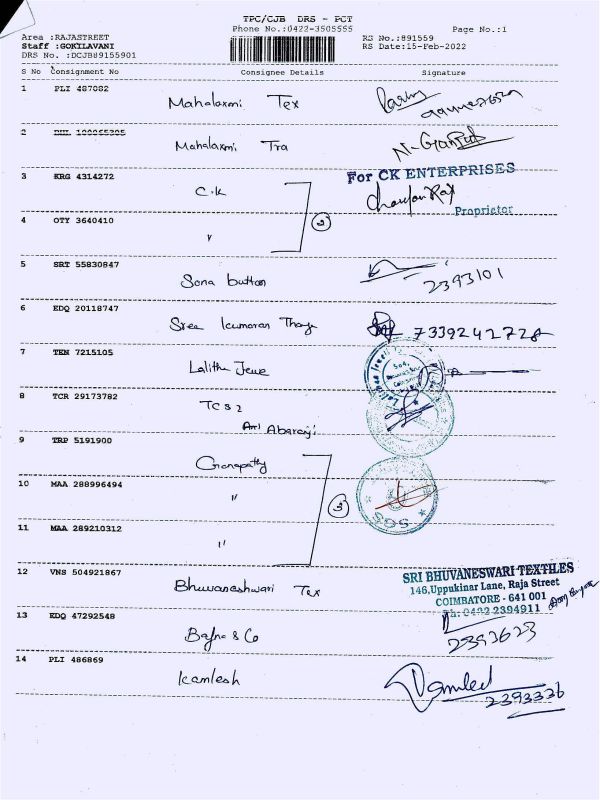 TPC/CJB DRS - PCT
Phone No.:0422-3505555
Page No.:1
Area :RAJASTREET
RS No.:891559
Staff :GOKILAVANI
RS Date:15-Feb-2022
DRS No. :DCJB89155901
S No Consignment No Consignee Details Signature
1 PLI 487082
Mahalaxmi Tex
2
Mahalaxmi Tra
3 KRG 4314272
C.K
For CK ENTERPRISES
Proprietor
4 OTY 3640410
"
2
5 SRT 55830847
Sona button
2393101
6 EDQ 20118747
Sree Kumaran Thanga
7339242728
7 TEN 7215105
Lalitha Jewe
8 TCR 29173782
TCS 2
9 TRP 5191900
Ganapathy
10 MAA 288996494
"
3
11 MAA 289210312
"
SGS
12 VNS 504921867
Bhuvaneshwari Tex
SRI BHUVANESWARI TEXTILES
146,Uppukinar Lane, Raja Street
COIMBATORE - 641 001
Ph: 0422 2394911
13 EDQ 47292548
Bafna & Co
2393623
14 PLI 486869
Kamlesh
2393336